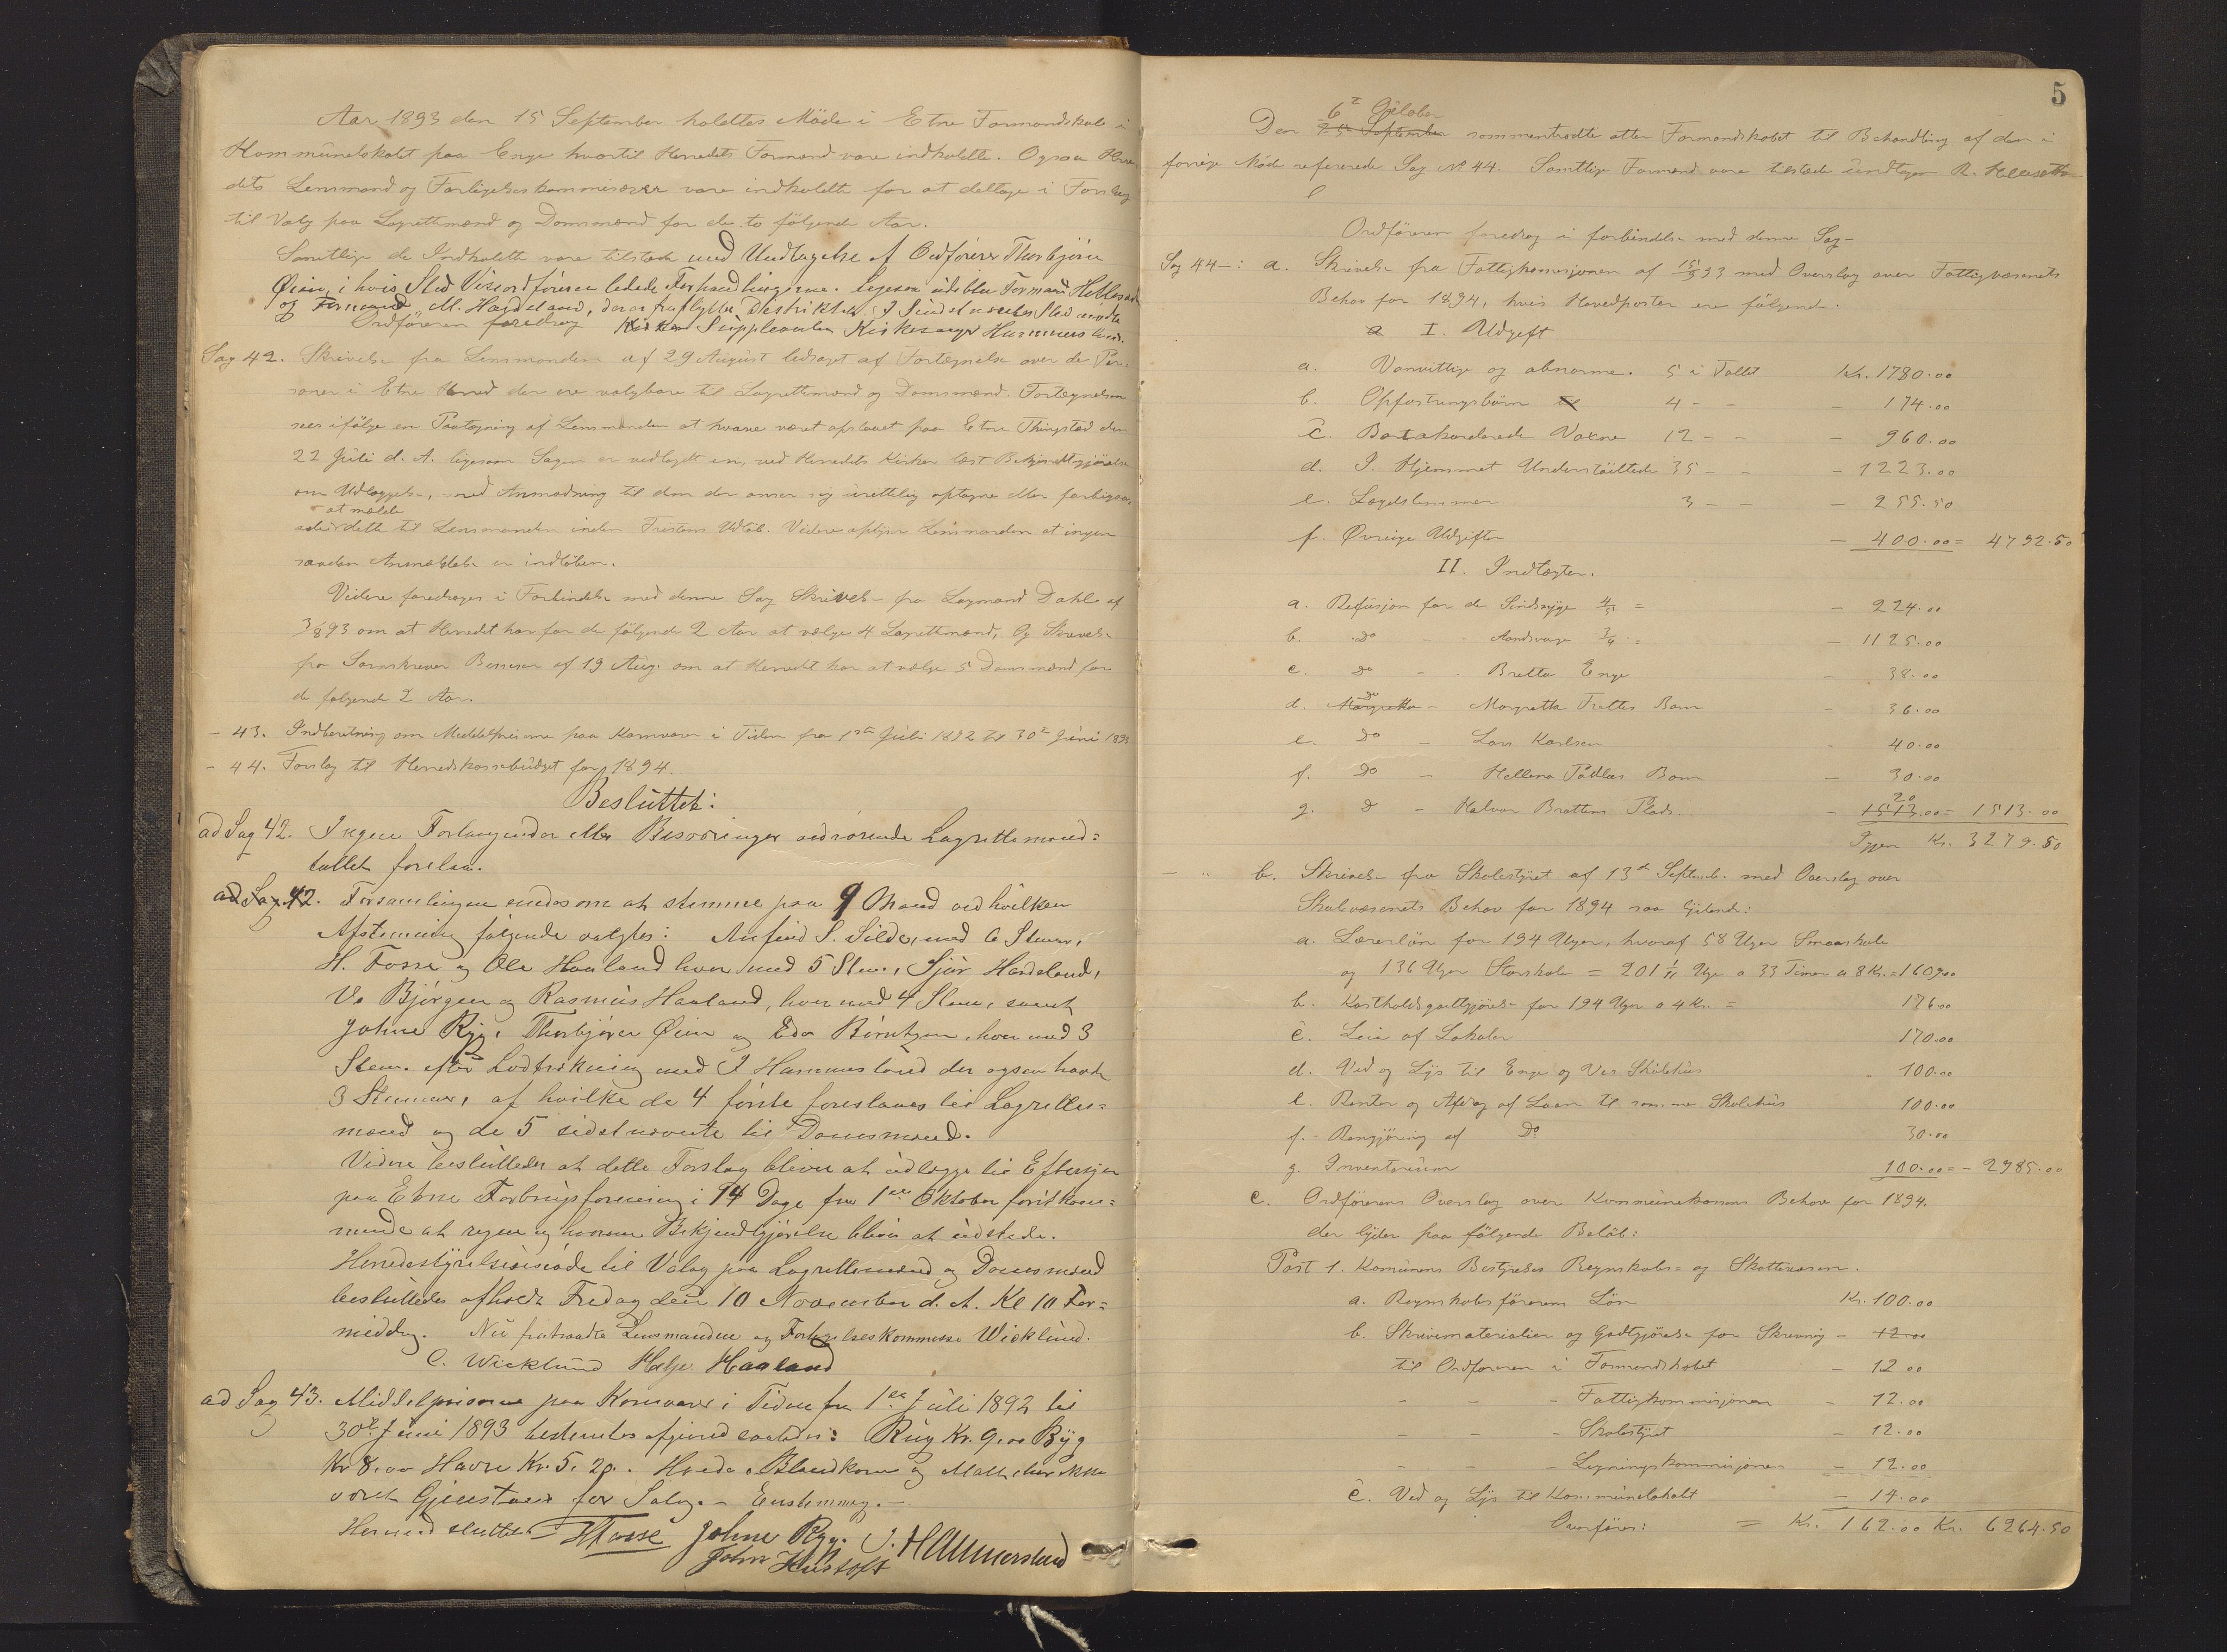 Aar 1893 den 15 September holdtes Møde i Etne Formandskab i
Kommunelokalet paa Enge hvortil Herredets Formænd vare indkaldte. Ogsaa Herre
dets Lensmand og Forligelseskommissærer vare indkaldte for at deltage i Forslag
til Valg paa Lagrettmænd og Domsmænd for de to følgende Aar.
Samtlige de Indkaldte vare tilstede med Undtagelse af Ordfører Thorbjørn
Øien, i hvis Sted Viceordføreren ledede Forhandlingerne. Ligesaa udeblev Formand
og Formand M. Hardeland, der er fraflyttet Distriktet. I Sidstnævntes Sted mødte
Ordføreren foredrog Suppleanten Kirkesanger Hammerslund.
Sag 42. Skrivelse fra Lensmanden af 29 August ledsaget af Fortegnelse over de Per-
soner i Etne Herred der ere valgbare til Lagrettmænd og Domsmænd. Fortegnelsen
sees ifølge en Paategning af Lensmanden at have været oplæst paa Etne Thingsted den
22 Juli d. A. ligesom Sagen er vedlagt en, ved Herredets Kirker læst Bekjendtgjørelse
om Udlæggelse, med Anmodning til dem der anser sig urettelig optagne eller forbigaa-
at melde
ede dette til Lensmanden inden Fristens Udløb. Videre oplyser Lensmanden at ingen
saadan Anmeldelse er indløben.
Videre foredroges i Forbindelse med denne Sag Skrivelse fra Lagmand Dahl af
3/8 93 om at Herredet har for de følgende 2 Aar at vælge 4 Lagrettmænd, Og Skrivelse
fra Sorenskriver af 19 Aug. om at Herredet har at vælge 5 Domsmænd for
de følgende 2 Aar.
- 43. Indberetning om Middelpriserne paa Kornvarer i Tiden fra 1ste Juli 1892 til 30te Juni 1893
- 44. Forslag til Herredskassebudget for 1894.
Besluttet:
ad Sag 42. Ingen Forlangender eller Besværinger vedrørende Lagrettemand=
tallet forelaa.
ad Sag 42. Forsamlingen enedes om at stemme paa 9 Mænd ved hvilken
Afstemning følgende valgtes: Anfind S. Silde, med 6 Stemmer,
H. Fosse og Ole Haaland hver med 5 Stem., Sjur Hardeland,
Vo Bjørgen og Rasmus Haaland, hver med 4 Stem., samt
Johne Rygg, Thorbjørn Øien og Edv Børretzen, hver med 3
Stem. efter Lodtrækning med J Hammerslund der ogsaa havde
3 Stemmer, af hvilke de 4 første foreslaaes til Lagrettes=
mænd og de 5 sidstnævnte til Domsmænd.
Videre besluttedes at dette Forslag bliver at udlægge til Eftersyn
paa Etne Forbrugsforening i 14 Dage fra 1ste Oktober førstkom=
mende at regne og hvorom Bekjendtgjørelse bliver at udstede.
Herredsstyrelsesmøde til Valg paa Lagrettemænd og Domsmænd
besluttedes afholdt Fredag den 10 November d. A. Kl 10 For=
middag. Nu fratraadte Lensmanden og Forligelseskommissær Wicklund.
C. Wicklund Helje Haaland
ad Sag 43. Middelpriserne paa Kornvarer i Tiden fra 1ste Juli 1892 til
30te Juni 1893 bestemtes afgivet saaledes: Rug Kr. 9.00 Byg
Kr 8.00 Havre Kr. 5.20. Hvede, Blandkorn og Malt har ikke
været Gjenstand for Salg. - Enstemmig. -
Hermed sluttet HFosse Johne Rygg. J. Hammerslund
John Hustoft
5
6te Oktober
Den 25te September sammentraadte atter Formandskabet til Behandling af den i
forrige Møde refererede Sag No 44. Samtlige Formænd vare tilstede undtagen R.
Ordføreren foredrog i forbindelse med denne Sag -
Sag 44 -: a. Skrivelse fra Fattigkommisjonen af 15/9 93 med Overslag over Fattigvæsenets
Behov for 1894, hvis Hovedposter ere følgende.
a I. Udgift
a. Vanvittige og abnorme. 5 i Tallet Kr. 1780.00
b. Opfostringsbørn til 4 - - - 174.00
c. Bortakorderede Voxne 12 - - - 960.00
d. I Hjemmet Understøttede 35 - - 1223.00
e. Lægdslemmer 3 - - - 255.50
f. Øvrige Udgifter - 400.00 = 4792.50
II. Indtægter.
a. Refusjon for de Sindssyge 4/5 = - 224.00
b. do - - Aandssvage 3/4 = - 1125.00
c. do - - Britta Enge - 38.00
d. Margretha do - Margretha Trettes Barn - 36.00
e. do - Lars Karlsen - 40.00
f. do - Hellena Pedlas Barn - 30.00
20
g. d - Halvor Brattens Plads. - 1513.00 = 1513.00
Igjen Kr. 3279.50
- " b. Skrivelse fra Skolestyret af 13de September med Overslag over
Skolevæsenets Behov for 1894 saa lydende:
a. Lærerløn for 194 Uger, hvoraf 58 Uger Smaaskole
og 136 Uger Storskole = 201 1/11 Uge a 33 Timer a 8 Kr. = 1609.00
b. Kostholdsgodtgjørelse for 194 Uger a 4 Kr. = 176.00
c. Leie af Lokaler 170.00
d. Ved og Lys til Enge og Ves Skolehus - 100.00
e. Renter og Afdrag af Laan til samme Skolehus 100.00
f. - Rengjøring af Do 30.00
g. Inventarium 100.00 = - 2985.00
c. Ordførerens Overslag over Kommunekassens Behov for 1894.
der lyder paa følgende Beløb:
Post 1. Komunens Bestyrelses Regnskabs- og Skattevæsen.
a. Regnskabsførerens Løn Kr. 100.00
b. Skrivematerialier og Godtgjørelse for Skrivning - 12.00
til Ordføreren i Formandskabet - 12.00
- - - Fattigkommisjonen - 12.00
- - - Skolestyret - 12.00
- - - Ligningskommisjonen - 12.00
c. Ved og Lys til Kommunelokalet - 14.00
Overføres: = Kr. 162.00 Kr. 6264.50